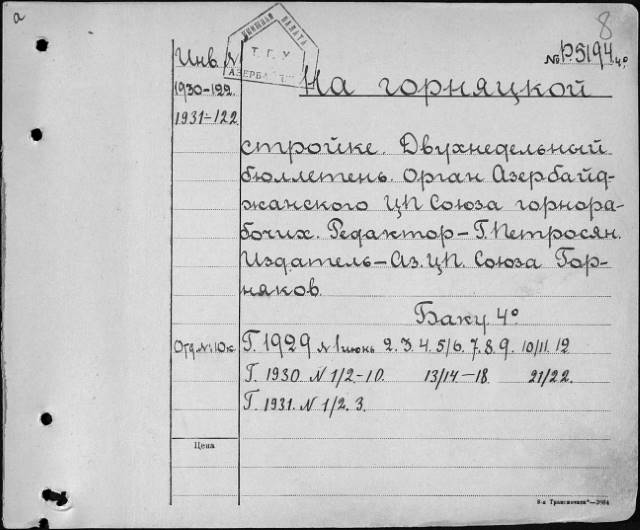 а
8
КНИЖНАЯ ПАЛАТА
Т. Г. У
АЗЕРБ
№ Р5194 4°
Инв. №
На горняцкой
1930-122
1931-122
стройке. Двухнедельный
бюллетень. Орган Азербайд-
жанского ЦП Союза горнора-
бочих. Редактор – Г. Петросян.
Издатель – Аз. ЦП. Союза Гор-
няков.
Баку. 4°
Отд. №. 10 к. Г. 1929 № 1 июнь 2. 3. 4. 5/6. 7. 8. 9. 10/11. 12
Г. 1930 № 1/2-10. 13/14-18. 21/22.
Г. 1931. № 1/2. 3.
Цена